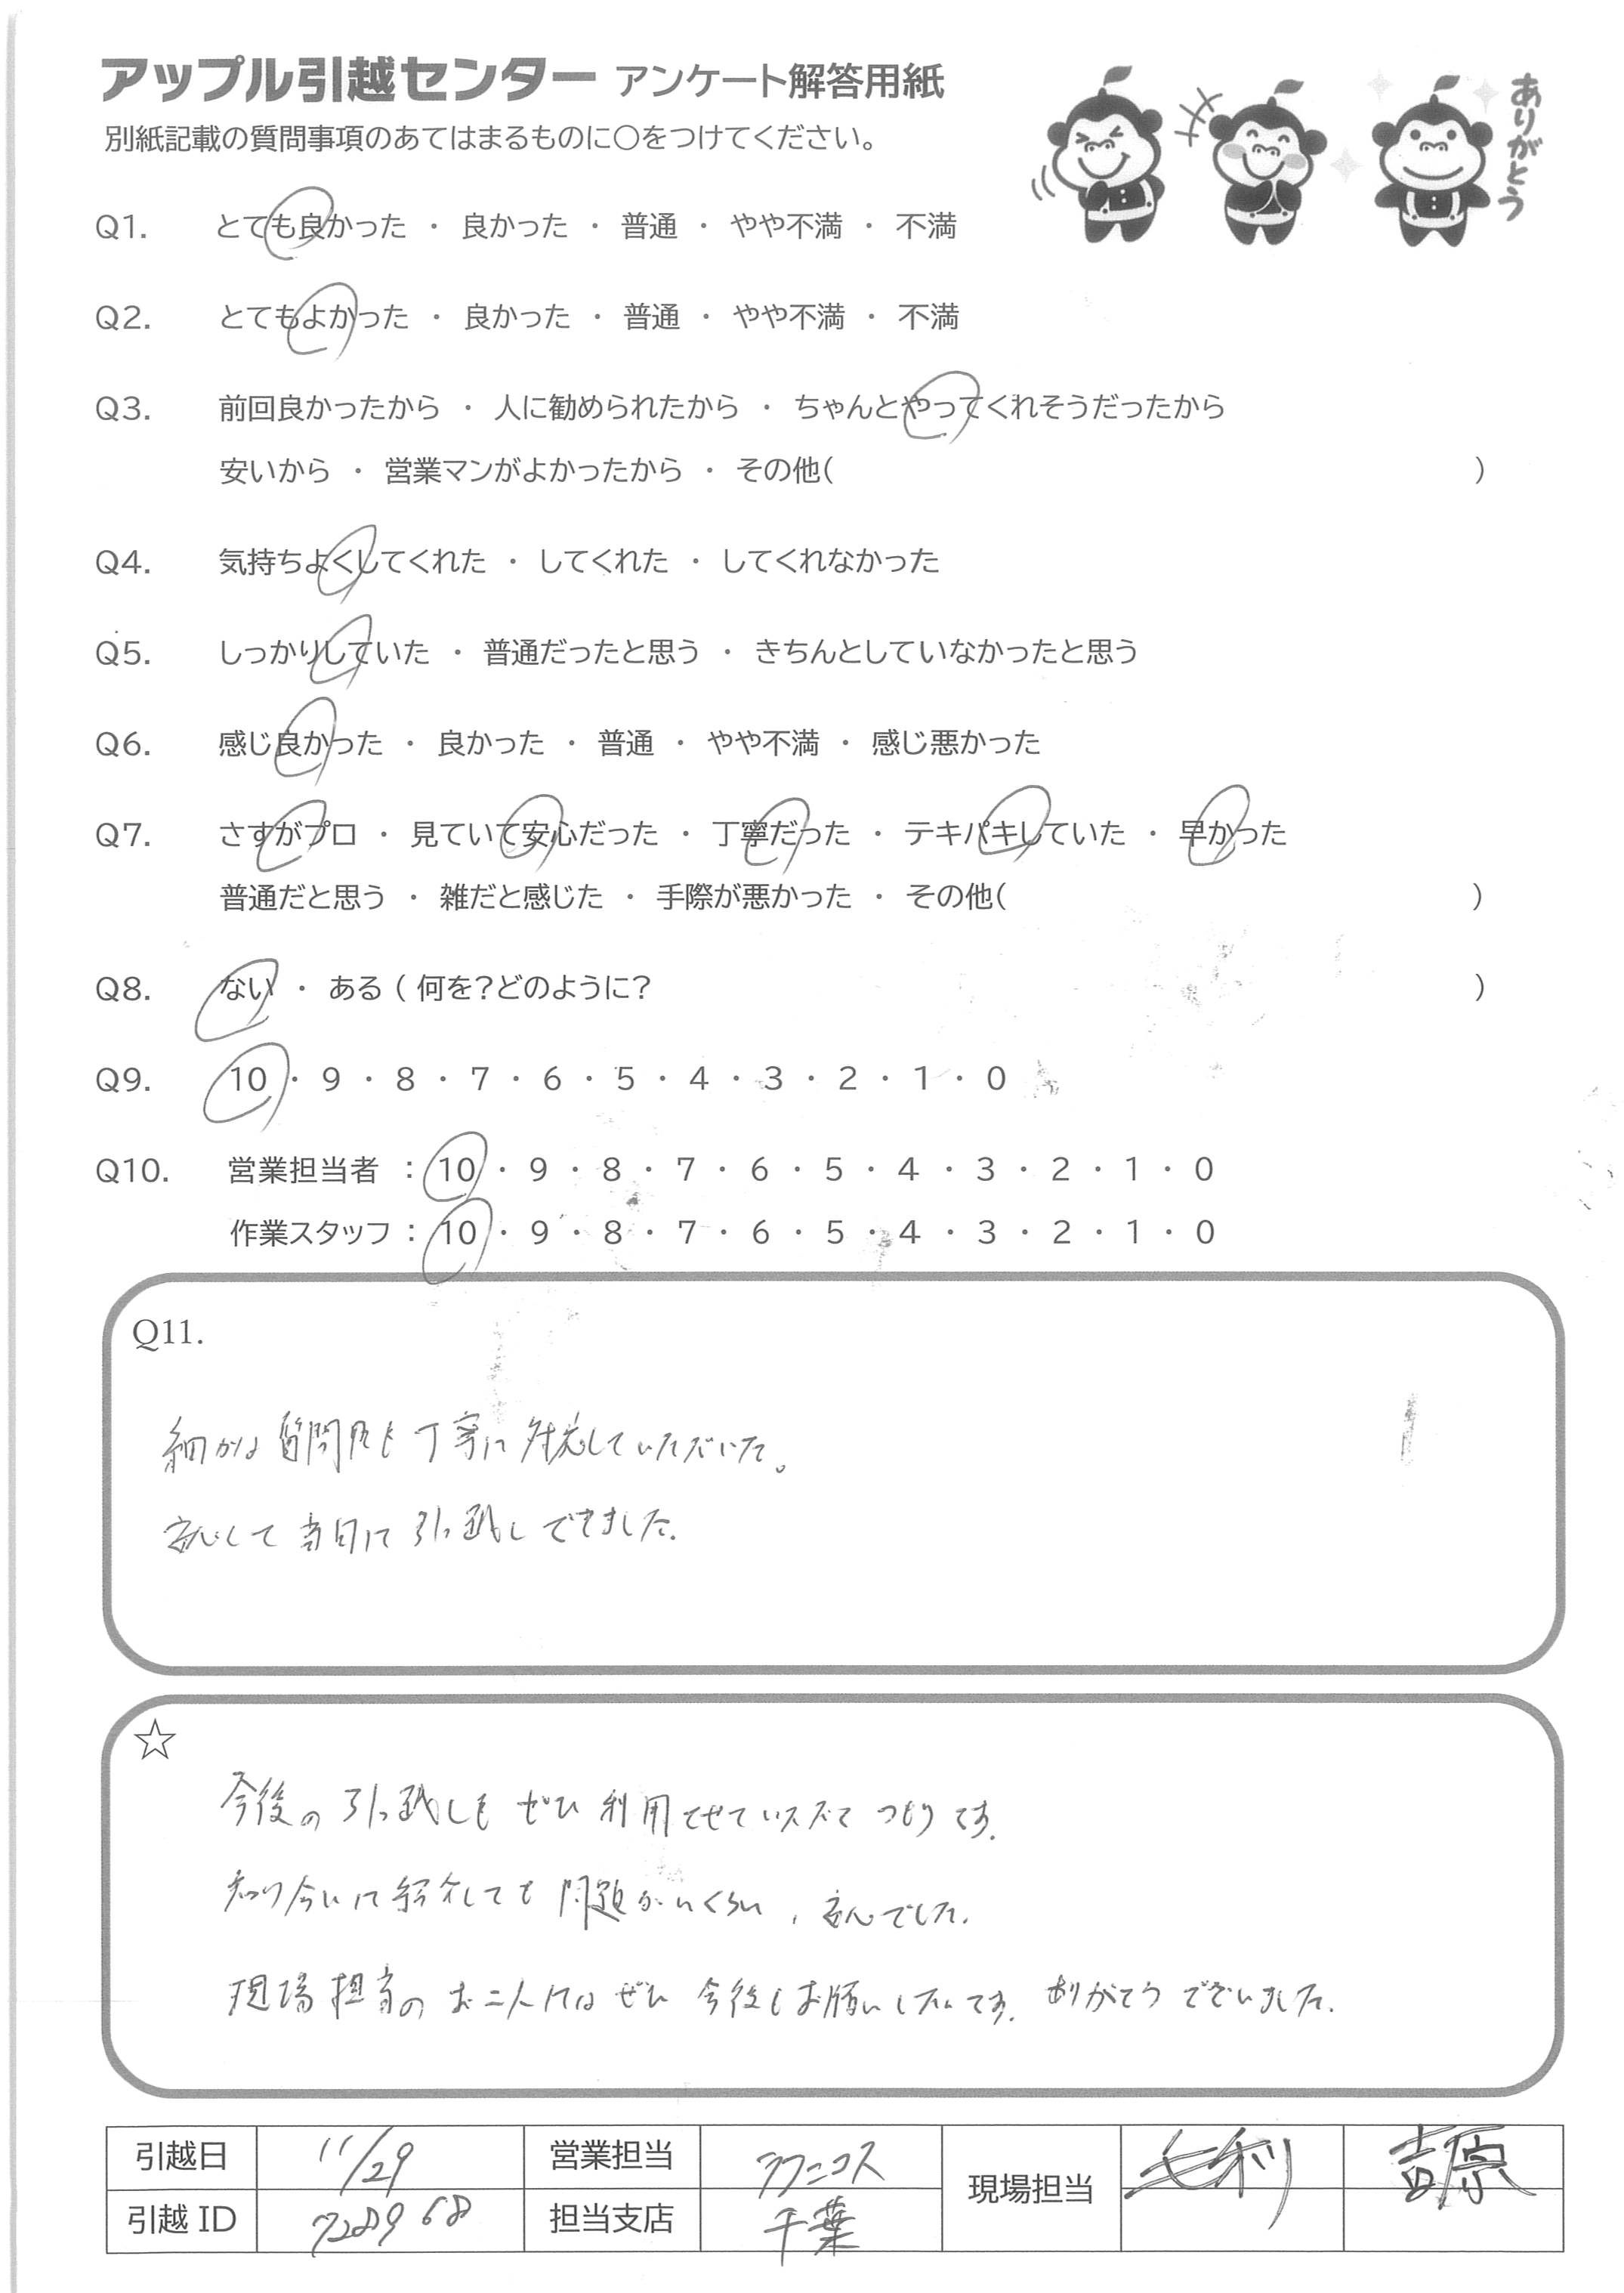 アップル引越センター アンケート解答用紙
別紙記載の質問事項のあてはまるものに○をつけてください。
ありがとう
Q1. とても良かった ・ 良かった ・ 普通 ・ やや不満 ・ 不満
Q2. とてもよかった ・ 良かった ・ 普通 ・ やや不満 ・ 不満
Q3. 前回良かったから ・ 人に勧められたから ・ ちゃんとやってくれそうだったから
安いから ・ 営業マンがよかったから ・ その他( )
Q4. 気持ちよくしてくれた ・ してくれた ・ してくれなかった
Q5. しっかりしていた ・ 普通だったと思う ・ きちんとしていなかったと思う
Q6. 感じ良かった ・ 良かった ・ 普通 ・ やや不満 ・ 感じ悪かった
Q7. さすがプロ ・ 見ていて安心だった ・ 丁寧だった ・ テキパキしていた ・ 早かった
普通だと思う ・ 雑だと感じた ・ 手際が悪かった ・ その他( )
Q8. ない ・ ある ( 何を?どのように? )
Q9. 10 ・ 9 ・ 8 ・ 7 ・ 6 ・ 5 ・ 4 ・ 3 ・ 2 ・ 1 ・ 0
Q10. 営業担当者 : 10 ・ 9 ・ 8 ・ 7 ・ 6 ・ 5 ・ 4 ・ 3 ・ 2 ・ 1 ・ 0
作業スタッフ : 10 ・ 9 ・ 8 ・ 7 ・ 6 ・ 5 ・ 4 ・ 3 ・ 2 ・ 1 ・ 0
Q11.
細かな質問にも丁寧に対応していただいた。
安心して当日に引っ越しできました.
☆
今後の引っ越しもぜひ利用させていただく つもりです.
知り合いに紹介しても問題ないくらい、 でした.
現場担当のお二人にはぜひ今後もお願いしたいです. ありがとうございました.
引越日 11/29 営業担当 現場担当 毛利 吉原
引越 ID 728968 担当支店 千葉